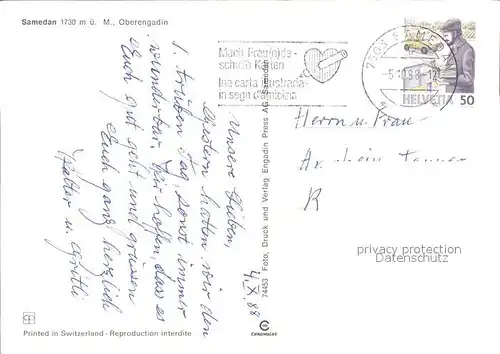 Samedan 1730 m ü. M., Oberengadin
Mach Freu(n)de -
schreib Karten
Ina carta illustrada -
in segn d'amicizia
7503 SAMEDAN
-5.10.88-12
HELVETIA 50
4.X.88
Unsere Lieben,
Gestern hatten wir den
1. trüben Tag, sonst immer
wunderbar. Wir hoffen, dass es
Euch gut geht und grüssen
Euch ganz herzlich
Walter u. Gritli
Herrn u. Frau
R
privacy protection
Datenschutz
74453 Foto, Druck und Verlag Engadin Press AG Samedan
CHROMOLUX
Printed in Switzerland - Reproduction interdite